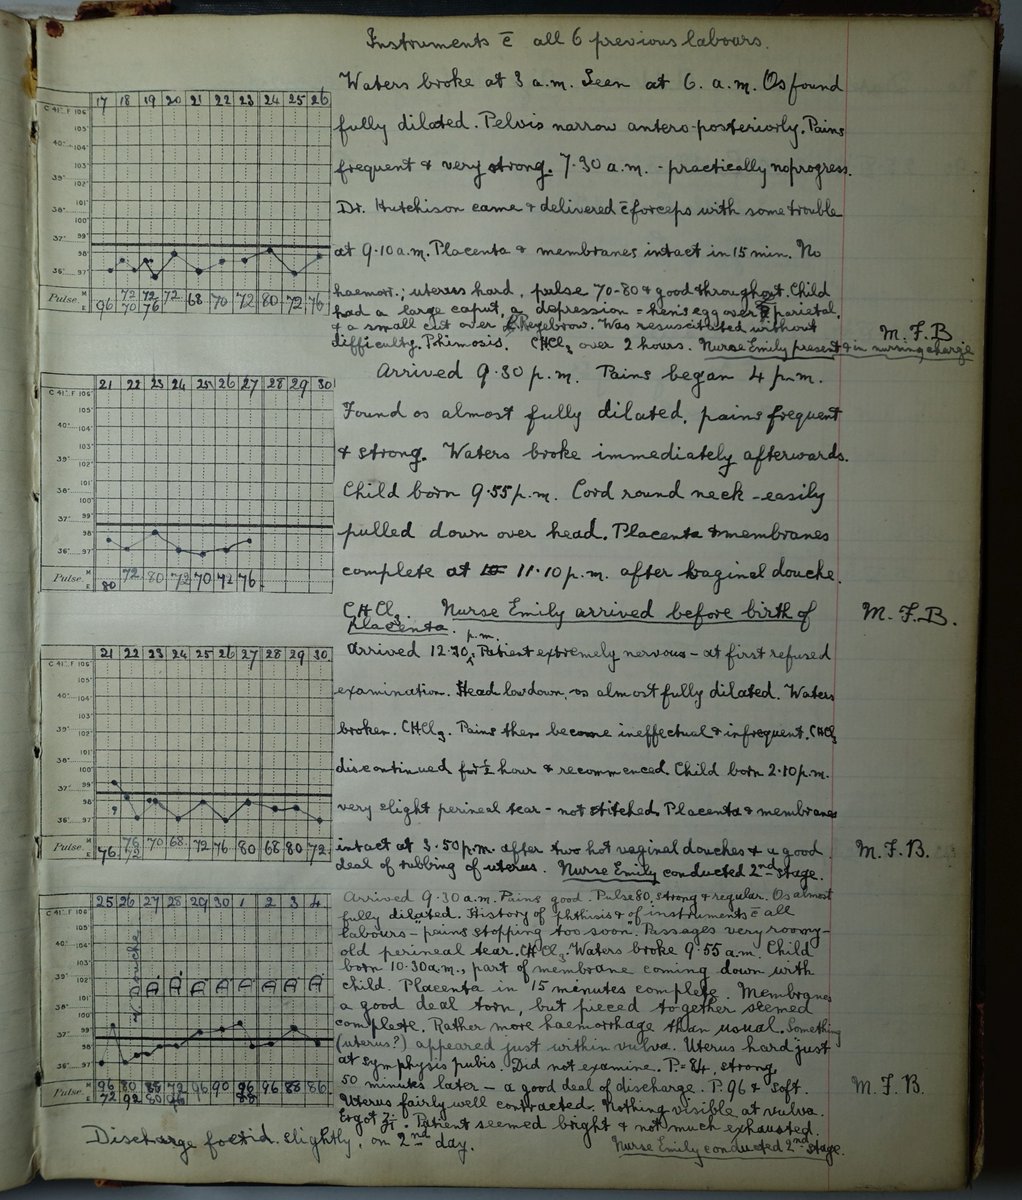 Instruments c̄ all 6 previous labours.
17 18 19 20 21 22 23 24 25 26
C 41° F 106
105
40° 104
103
39° 102
101
38° 100
99
37° 98
36° 97
Pulse. M E 96 72 70 72 76 72 68 70 72 80 72 76
Waters broke at 3 a.m. Seen at 6. a.m. Os found
fully dilated. Pelvis narrow antero-posteriorly. Pains
frequent & very strong. 7.30 a.m. - practically no progress.
Dr. Hutchison came & delivered c̄ forceps with some trouble
at 9.10 a.m. Placenta & membranes intact in 15 min. No
haemorr.; uterus hard, pulse 70-80 & good throughout. Child
had a large caput, a depression = hen's egg over parietal,
& a small cut over R. eyebrow. Was resuscitated without
difficulty. Phimosis. CHCl3 over 2 hours. Nurse Emily present & in nursing charge
M. F. B
21 22 23 24 25 26 27 28 29 30
C 41° F 106
105
40° 104
103
39° 102
101
38° 100
99
37° 98
36° 97
Pulse. M E 80 72 80 72 70 72 76
Arrived 9.30 p.m. Pains began 4 p.m.
Found os almost fully dilated, pains frequent
& strong. Waters broke immediately afterwards.
Child born 9.55 p.m. Cord round neck - easily
pulled down over head. Placenta & membranes
complete at 11.10 p.m. after vaginal douche.
CHCl3. Nurse Emily arrived before birth of
placenta.
M. F. B.
21 22 23 24 25 26 27 28 29 30
C 41° F 106
105
40° 104
103
39° 102
101
38° 100
99
37° 98
36° 97
Pulse. M E 76 76 72 70 68 72 76 80 68 80 72
Arrived 12.30 p.m. Patient extremely nervous - at first refused
examination. Head low down, os almost fully dilated. Waters
broken. CHCl3. Pains then became ineffectual & infrequent. CHCl3
discontinued for ½ hour & recommenced. Child born 2.10 p.m.
very slight perineal tear - not stitched. Placenta & membranes
intact at 3.50 p.m. after two hot vaginal douches & a good
deal of rubbing of uterus. Nurse Emily conducted 2nd stage.
M. F. B.
25 26 27 28 29 30 1 2 3 4
C 41° F 106
105
40° 104
103
39° 102
101
38° 100
99
37° 98
36° 97
V. Douche
A A A A A A A A
Pulse. M E 96 72 80 92 88 80 72 96 96 90 96 88 96 88 86
Arrived 9.30 a.m. Pains good. Pulse 80, strong & regular. Os almost
fully dilated. History of phthisis & "of instruments c̄ all
labours - pains stopping too soon". Passages very roomy -
old perineal tear. CHCl3. Waters broke 9.55 a.m. Child
born 10.30 a.m., part of membrane coming down with
child. Placenta in 15 minutes complete. Membranes
a good deal torn, but pieced together seemed
complete. Rather more haemorrhage than usual. Something
(uterus?) appeared just within vulva. Uterus hard just
at symphysis pubis. Did not examine. P = 84, strong.
50 minutes later - a good deal of discharge. P. 96 & soft.
Uterus fairly well contracted. Nothing visible at vulva.
Ergot ʒi. Patient seemed bright & not much exhausted.
Nurse Emily conducted 2nd stage.
M. F. B.
Discharge foetid slightly, on 2nd day.